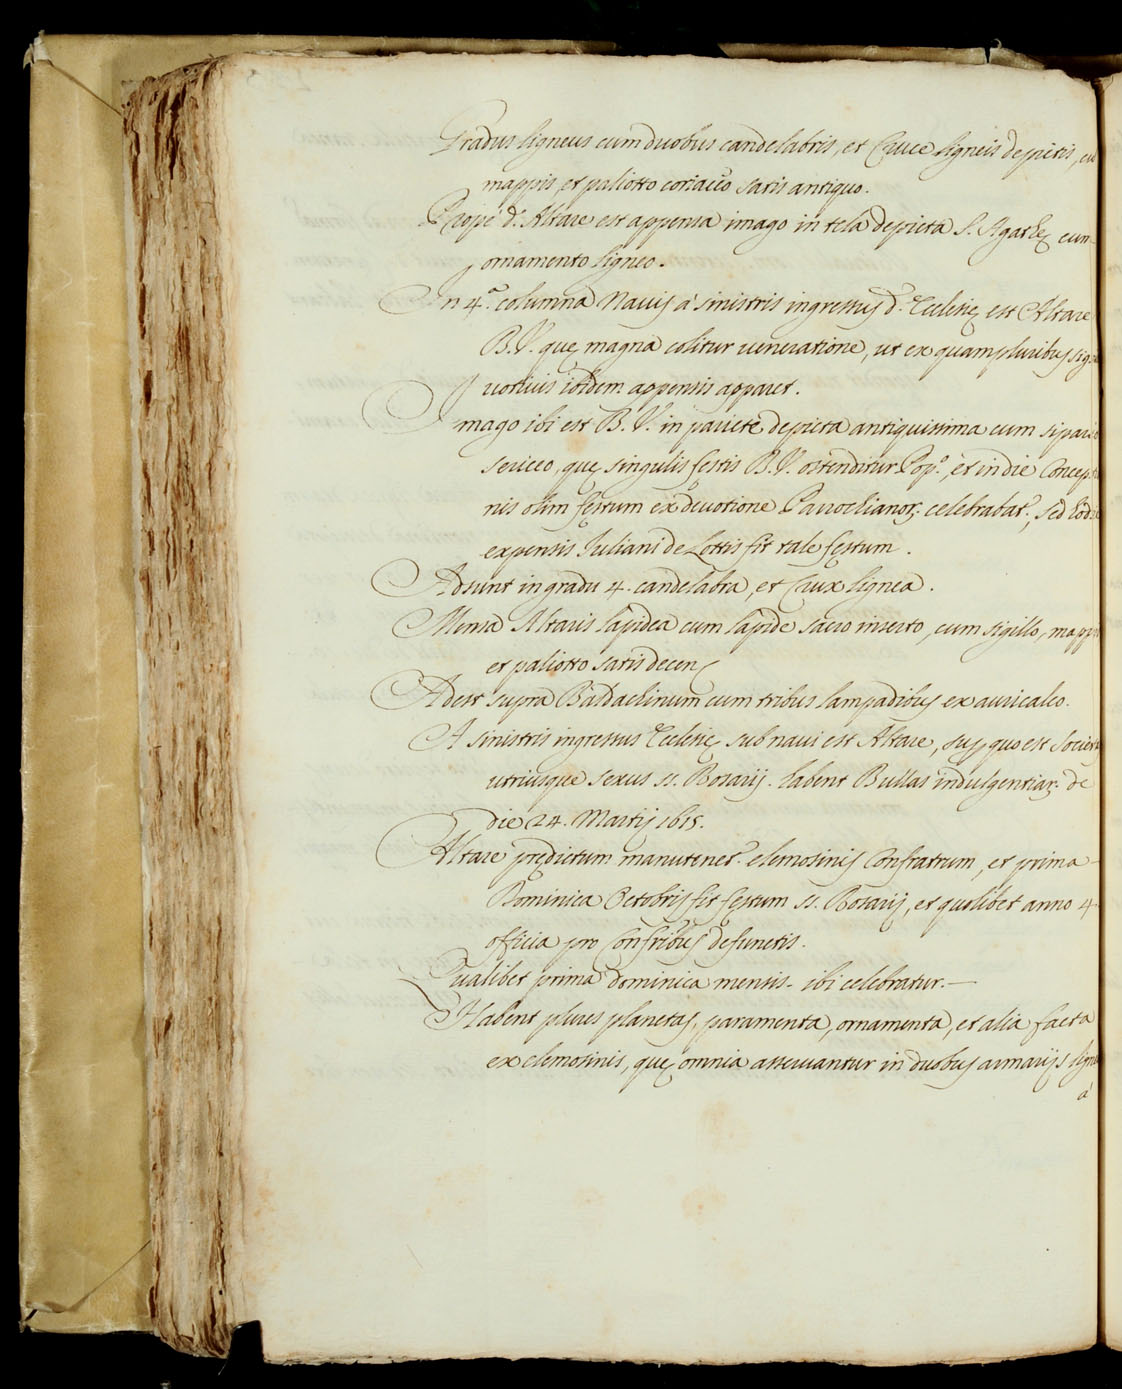 Gradus ligneus cum duobus candelabris, et Cruce ligneis depictis, cu
mappis, et paliotto coriaceo satis antiquo.
Prope d. Altare est appensa imago in tela depicta S. Agathę cum
ornamento ligneo.
In 4.a columna Nauis à sinistris ingressus d. Ecclesię est Altare
B. V. quę magna colitur ueneratione, ut ex quampluribus sig
uotiuis ibidem appensis apparet.
Imago ibi est B. V. in pariete depicta antiquissima cum sipario
sericeo, quę singulis festis B. V. ostenditur Pop.o, et in die Concept
nis olim festum ex deuotione Parrochianor. celebrabat.r, sed hodie
expensis Iuliani de Lottis fit tale festum.
Adsunt in gradu 4. candelabra, et Crux lignea.
Mensa Altaris lapidea cum lapide sacro inserto, cum sigillo, mapp
et paliotto satis decen
Adest supra Baldachinum cum tribus lampadibus ex auricalco.
A sinistris ingressus Ecclesię sub naui est Altare, sup quo est Societ
utriusque sexus ss. Rosarij. habent Bullas indulgentiar. de
die 24. Martij 1615.
Altare prędictum manutenet.r elemosinis Confratrum, et prima
Dominica Octobris fit festum ss. Rosarij, et quolibet anno 4.
officia pro Confribus defunctis.
Qualibet prima Dominica mensis ibi celebratur.
Habent plures planetas, paramenta, ornamenta, et alia facta
ex elemosinis, quę omnia asseruantur in duobus armarijs lign
à